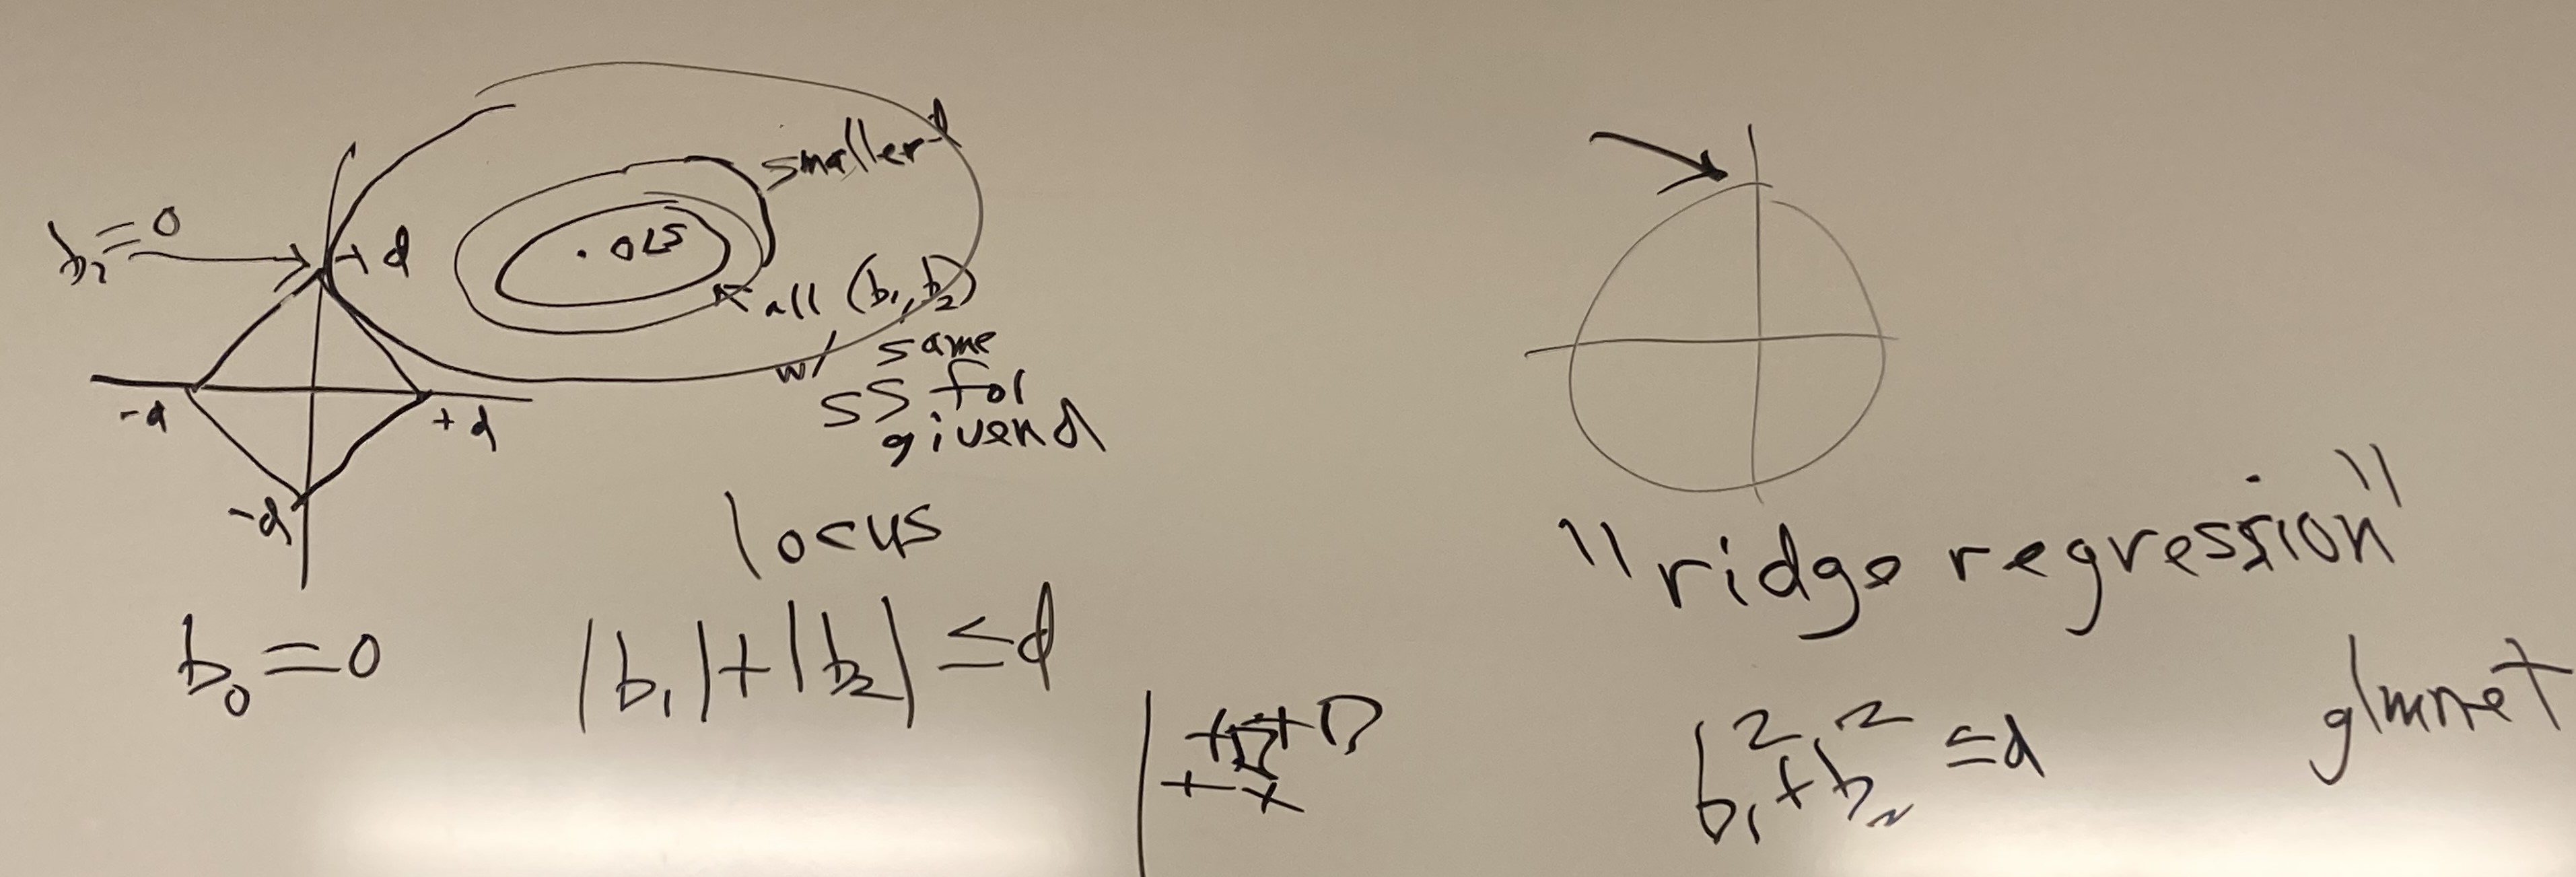 smaller d
b₂ = 0
+d
. OLS
all (b₁, b₂)
w/ same
SS for
given d
-d
+d
-d
locus
b₀ = 0
|b₁| + |b₂| ≤ d
"ridge regression"
b₁² + b₂² ≤ d
glmnet